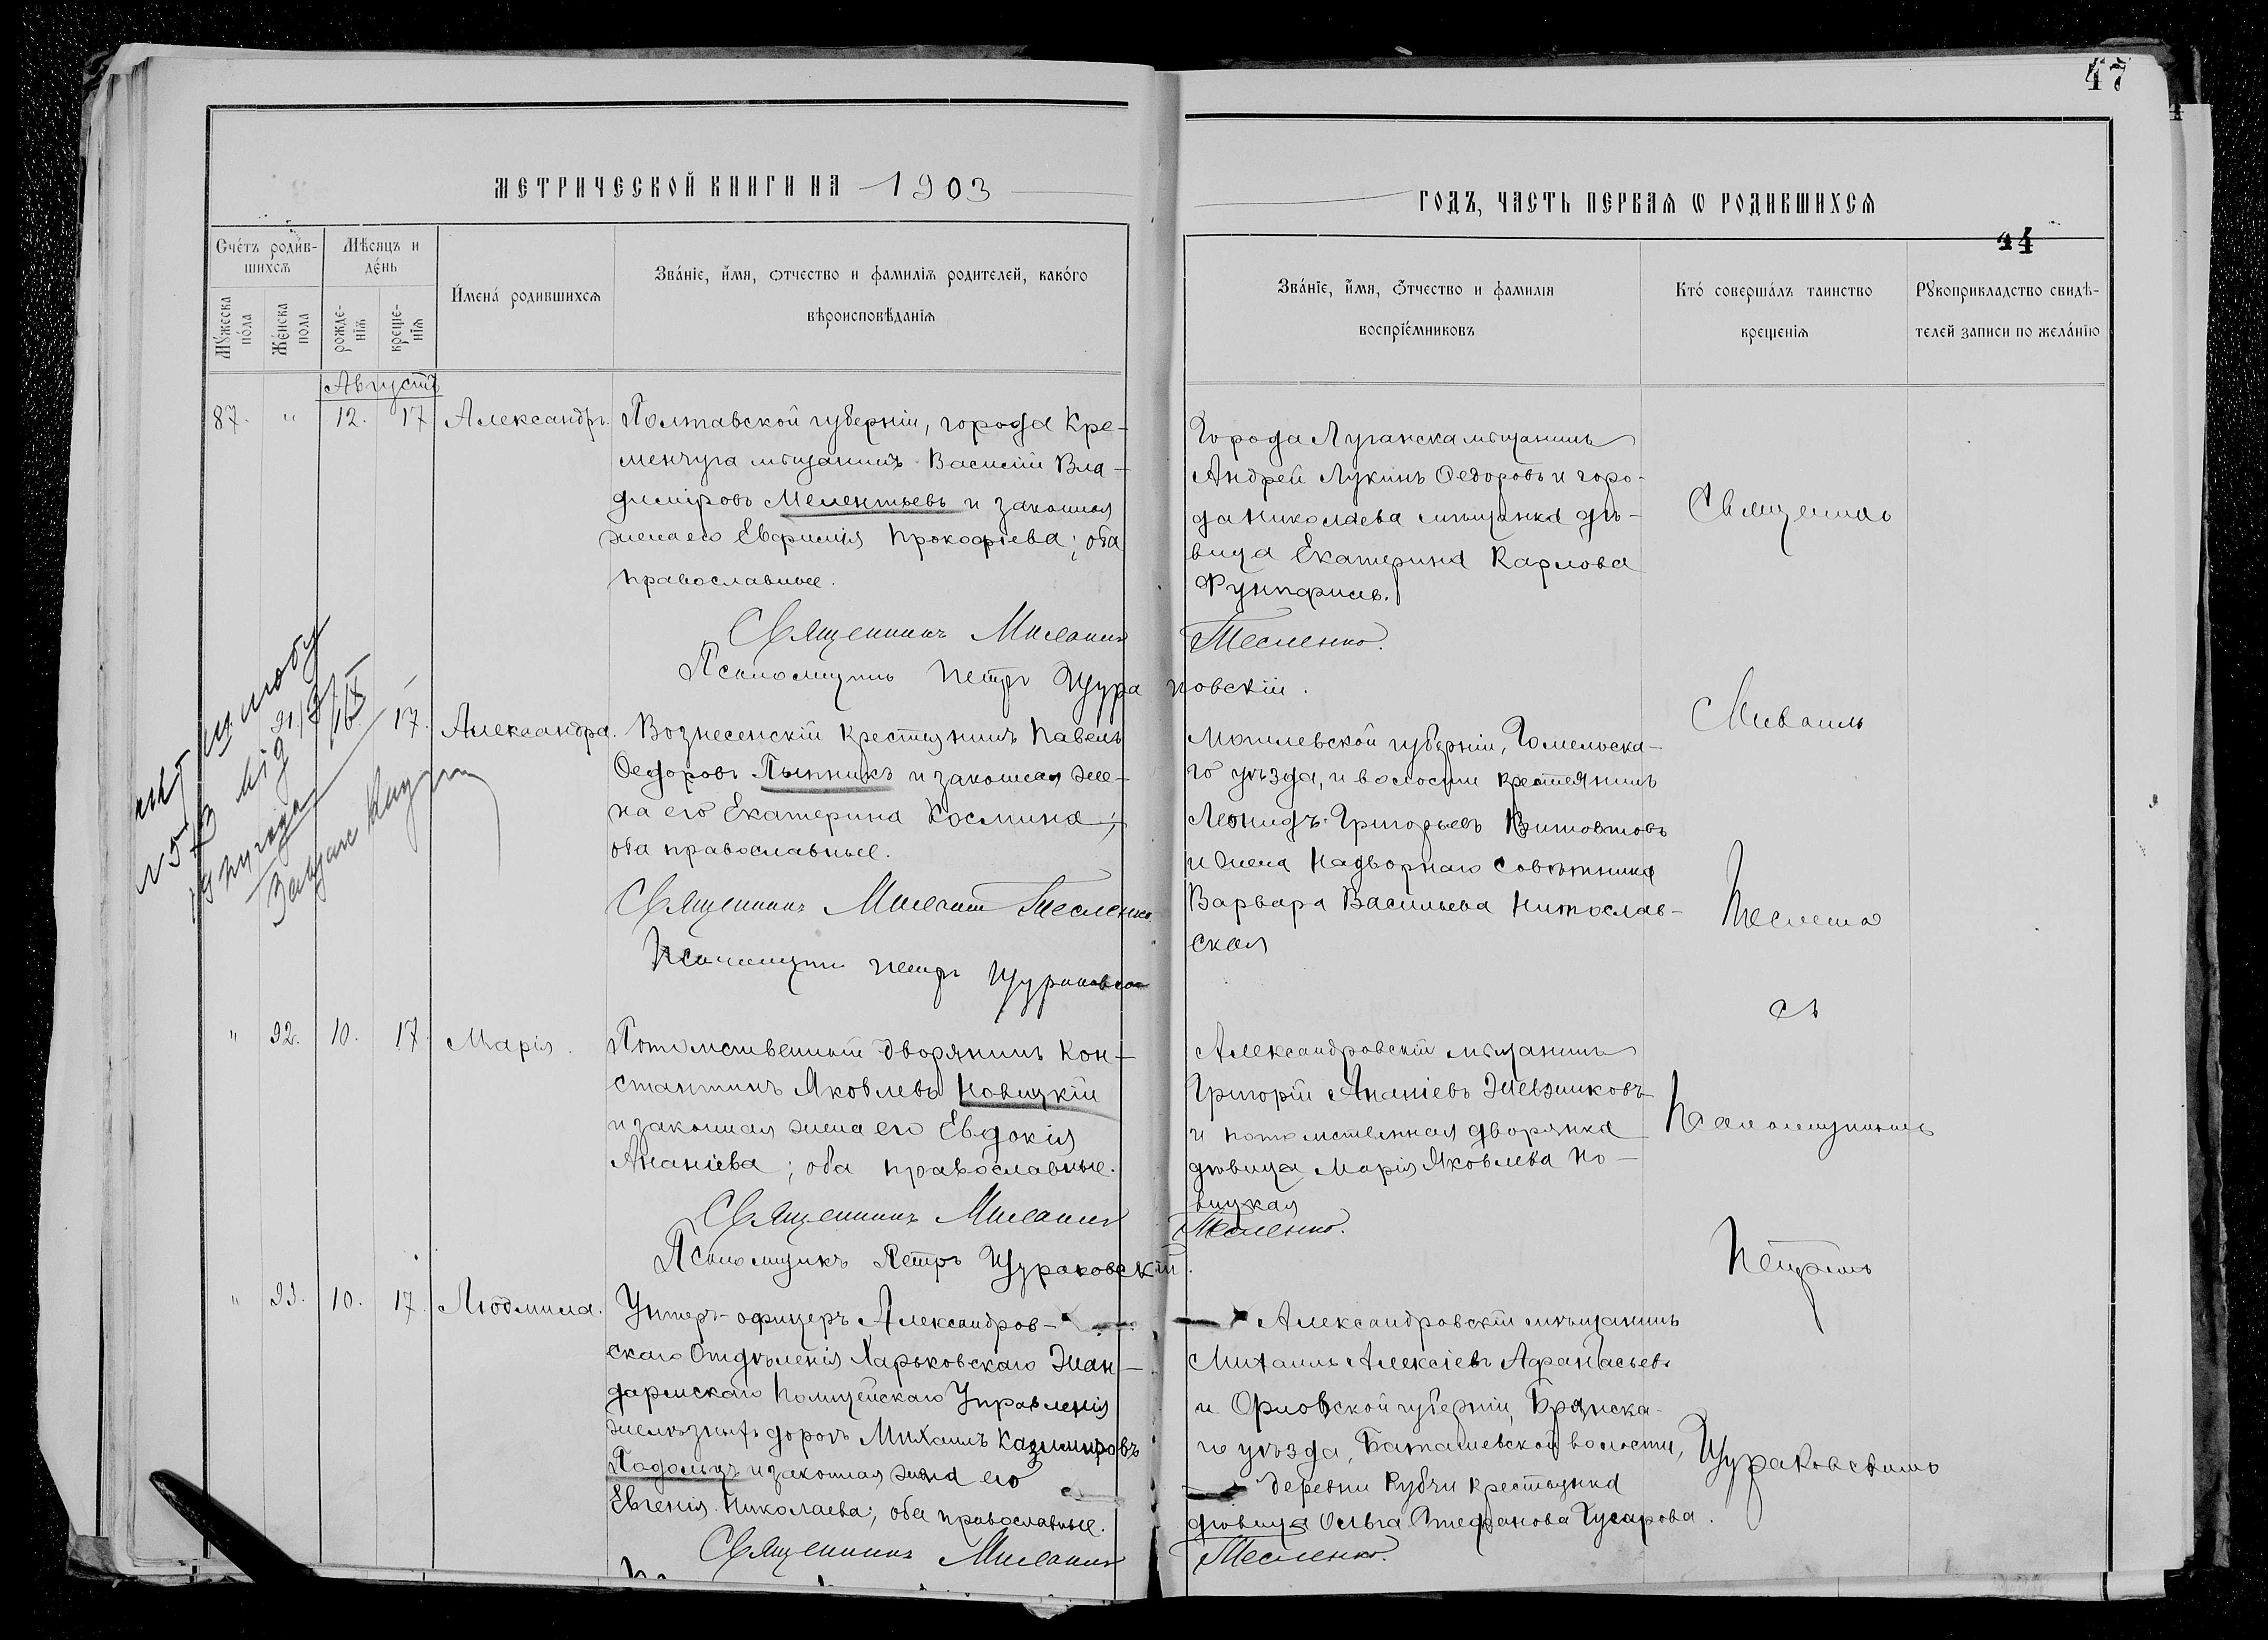 47
МЕТРИЧЕСКОЙ КНИГИ НА 1903
ГОДЪ, ЧАСТЬ ПЕРВАЯ Ѡ РОДИВШИХСЯ
44
Счетъ родив-
шихся
Мѣсяцъ и
день
Мужеска
пола
Женска
пола
рожде-
нія
креще-
нія
Имена родившихся
Званіе, имя, отчество и фамилія родителей, какого
вѣроисповѣданія
Званіе, имя, отчество и фамилія
воспріемниковъ
Кто совершалъ таинство
крещенія
Рукоприкладство свидѣ-
телей записи по желанію
Августъ
87. " 12. 17 Александръ.
Полтавской губерніи, города Кре-
менчуга мѣщанинъ Василій Вла-
диміровъ Мелентьевъ и законная
жена его Евфимія Прокофіева; оба
православные.
Священникъ Михаилъ Тесленко.
Псаломщикъ Петръ Щураковскій.
Города Луганска мѣщанинъ
Андрей Лукинъ Ѳедоровъ и горо-
да Николаева мѣщанка дѣ-
вица Екатерина Карлова
Священникъ
Михаилъ
Тесленко
съ
Псаломщикомъ
Петромъ
Щураковскимъ
17. Александра.
Вознесенскій крестьянинъ Павелъ
Ѳедоровъ Пытникъ и законная же-
на его Екатерина Космина;
оба православные.
Священникъ Михаилъ Тесленко.
Псаломщикъ Петръ Щураковскій
Могилевской губерніи, Гомельска-
го уѣзда, и волости крестьянинъ
Леонидъ Григорьевъ Витовтовъ
и жена Надворнаго Совѣтника
Варвара Васильева Нитослав-
ская
" 92. 10. 17. Марія.
Потомственный дворянинъ Кон-
стантинъ Яковлевъ Новицкій
и законная жена его Евдокія
Ананіева; оба православные.
Священникъ Михаилъ Тесленко.
Псаломщикъ Петръ Щураковскій.
Александровскій мѣщанинъ
Григорій Ананіевъ
и потомственная дворянка
дѣвица Марія Яковлева Но-
вицкая
" 93. 10. 17. Людмила.
Унтеръ-офицеръ Александров-
скаго Отдѣленія Харьковскаго Жан-
дармскаго Полицейскаго Управленія
желѣзныхъ дорогъ Михаилъ Казимировъ
Подолецъ и законная жена его
Евгенія Николаева; оба православные.
Священникъ Михаилъ Тесленко.
Александровскій мѣщанинъ
Михаилъ Алексіевъ Афанасьевъ
и Орловской губерніи, Брянска-
го уѣзда, Баташевской волости,
деревни Кубчи крестьянка
дѣвица Ольга Стефанова Гусарова.